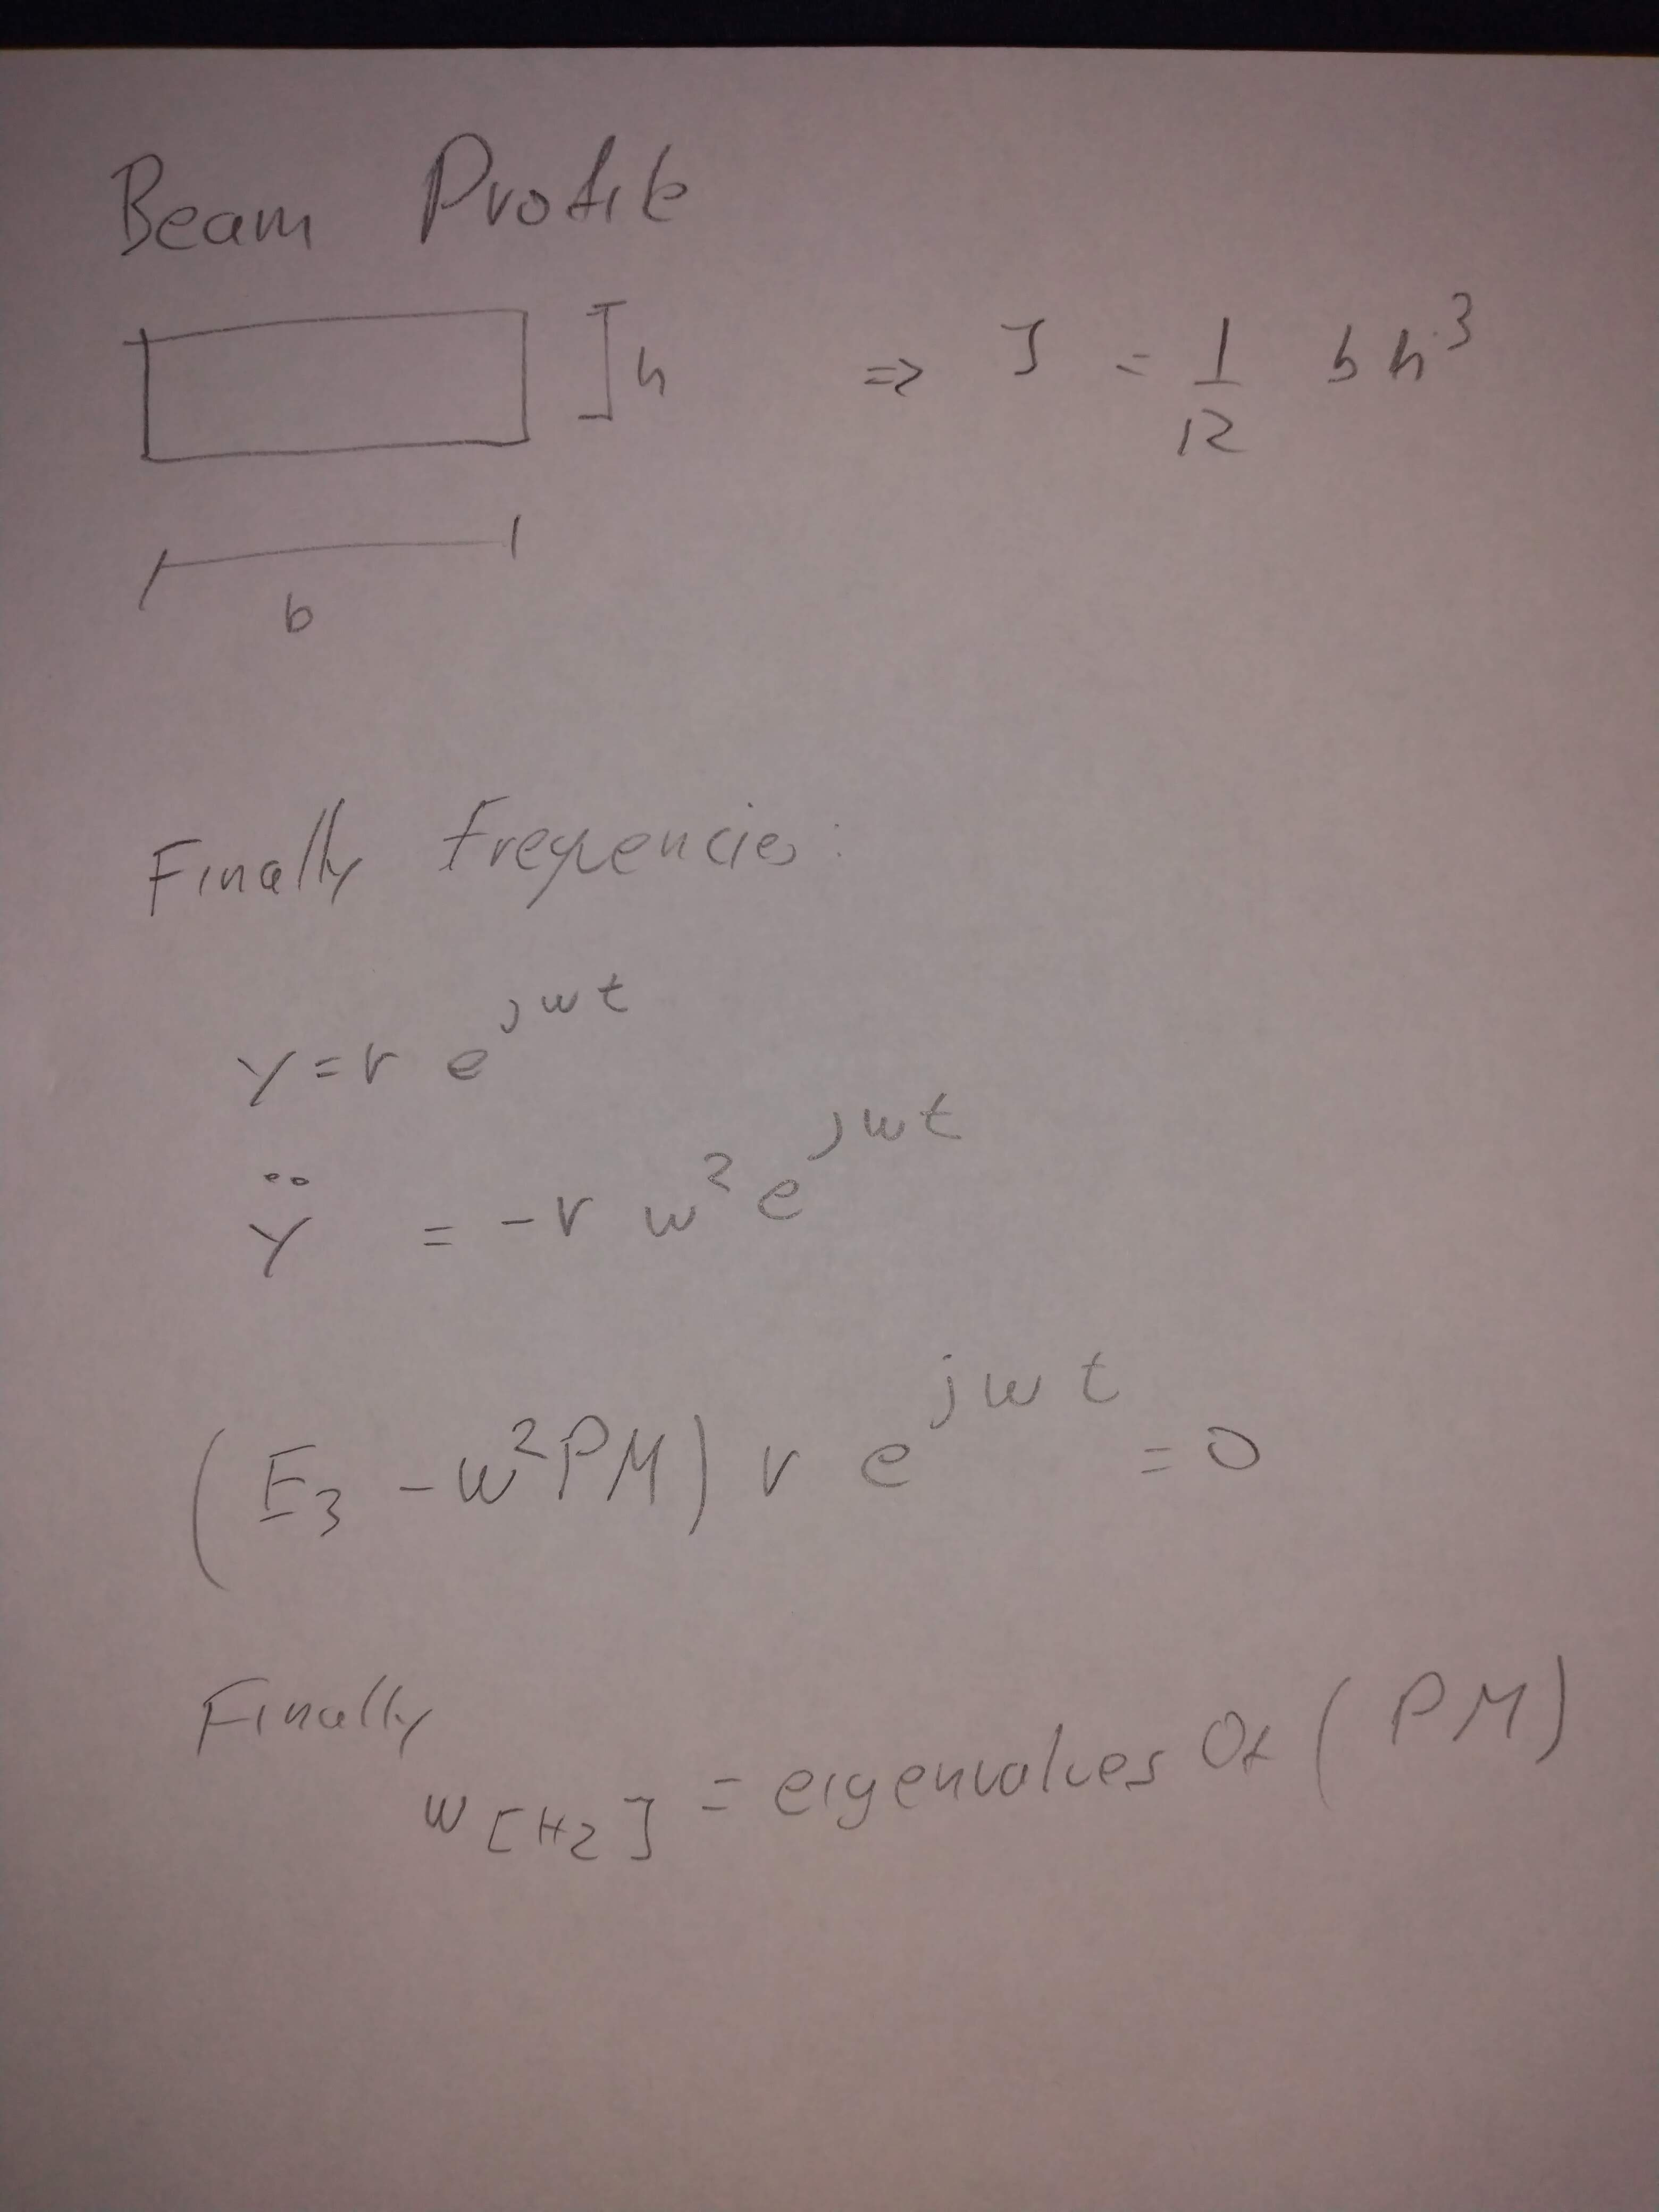 Beam Profile
h ⇒ J = 1/12 b h³
b
Finally frequencies:
y = r e^{jwt}
ÿ = -r w² e^{jwt}
(E₃ - w²PM) r e^{jwt} = 0
Finally
w[Hz] = eigenvalues Of (PM)